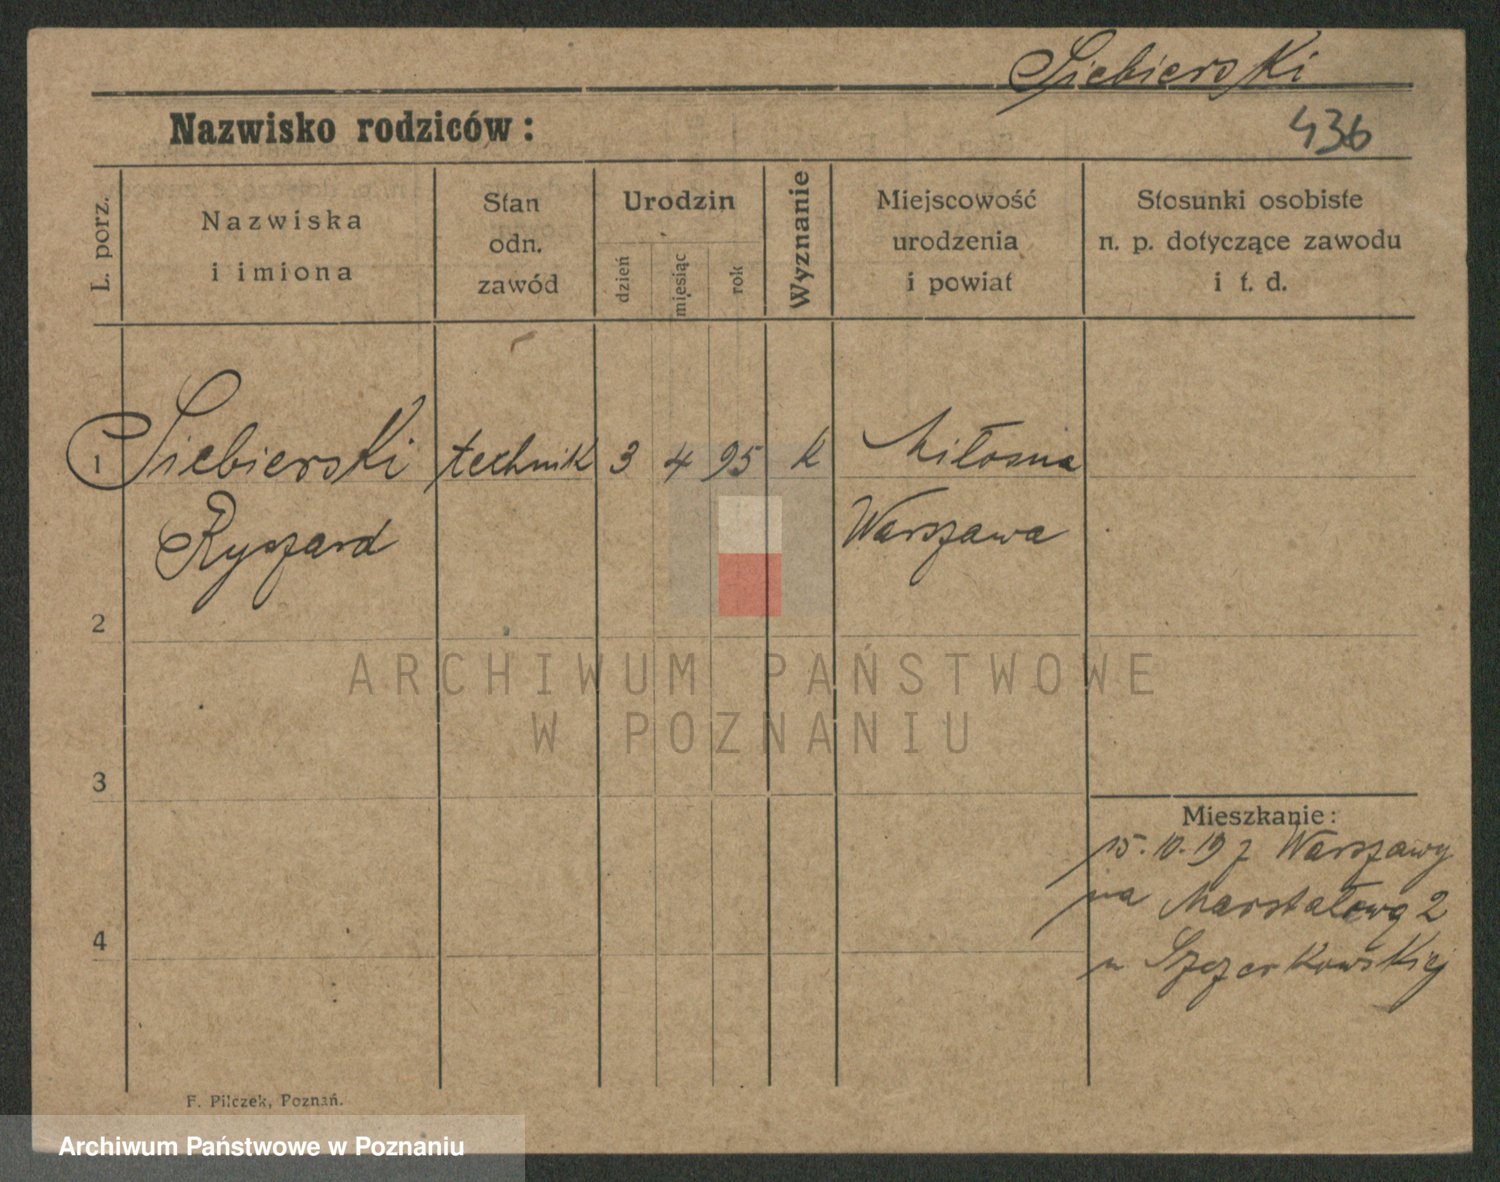 Siebierski
Nazwisko rodziców:
436
L. porz.
Nazwiska
i imiona
Stan
odn.
zawód
Urodzin
dzień
miesiąc
rok
Wyznanie
Miejscowość
urodzenia
i powiat
Stosunki osobiste
n. p. dotyczące zawodu
i t. d.
1 Siebierski technik 3 4 95 k Miłosna
Ryszard Warszawa
2
3
4
Mieszkanie:
15.10.19 z Warszawy
na Marstałową 2
u Szczerkowskiej
F. Pilczek, Poznań.
ARCHIWUM PAŃSTWOWE
W POZNANIU
Archiwum Państwowe w Poznaniu